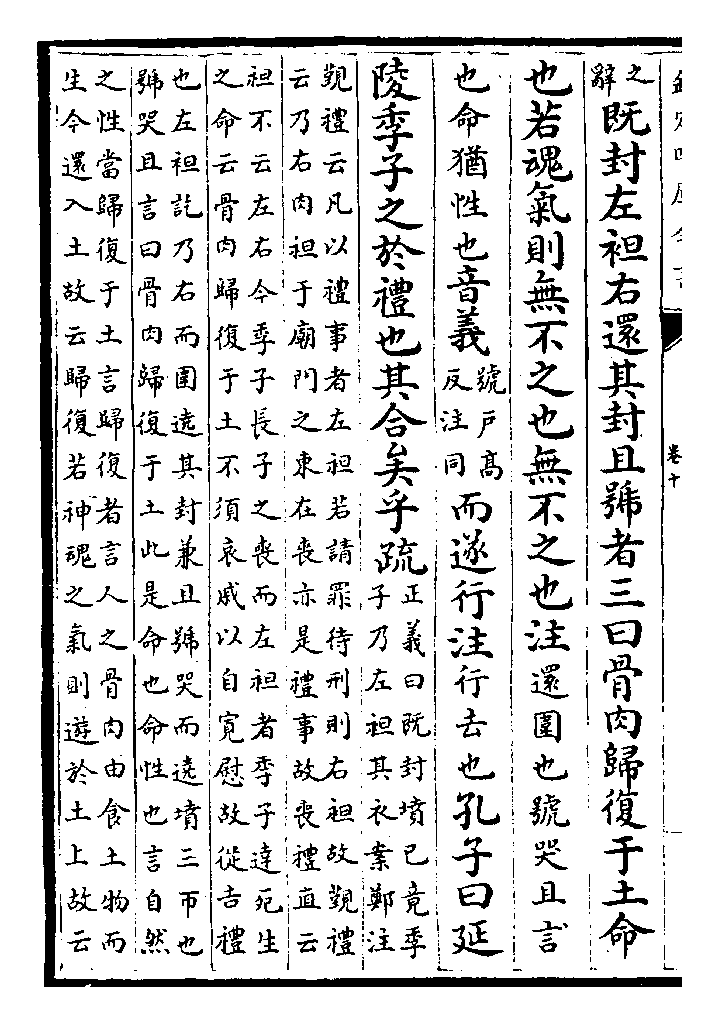 欽定四庫全書
卷十
之
辭
既封左袒右還其封且號者三曰骨肉歸復于土命
也若魂氣則無不之也無不之也注還圍也號哭且言
也命猶性也音義
號戶高
反注同
而遂行注行去也孔子曰延
陵季子之於禮也其合矣乎疏
正義曰既封墳已竟季
子乃左袒其衣案鄭注
覲禮云凡以禮事者左袒若請罪待刑則右袒故覲禮
云乃右肉袒于廟門之東在喪亦是禮事故喪禮直云
袒不云左右今季子長子之喪而左袒者季子達死生
之命云骨肉歸復于土不須哀戚以自寛慰故從吉禮
也左袒訖乃右而圍遶其封兼且號哭而遶墳三帀也
號哭且言曰骨肉歸復于土此是命也命性也言自然
之性當歸復于土言歸復者言人之骨肉由食土物而
生今還入土故云歸復若神魂之氣則遊於土上故云